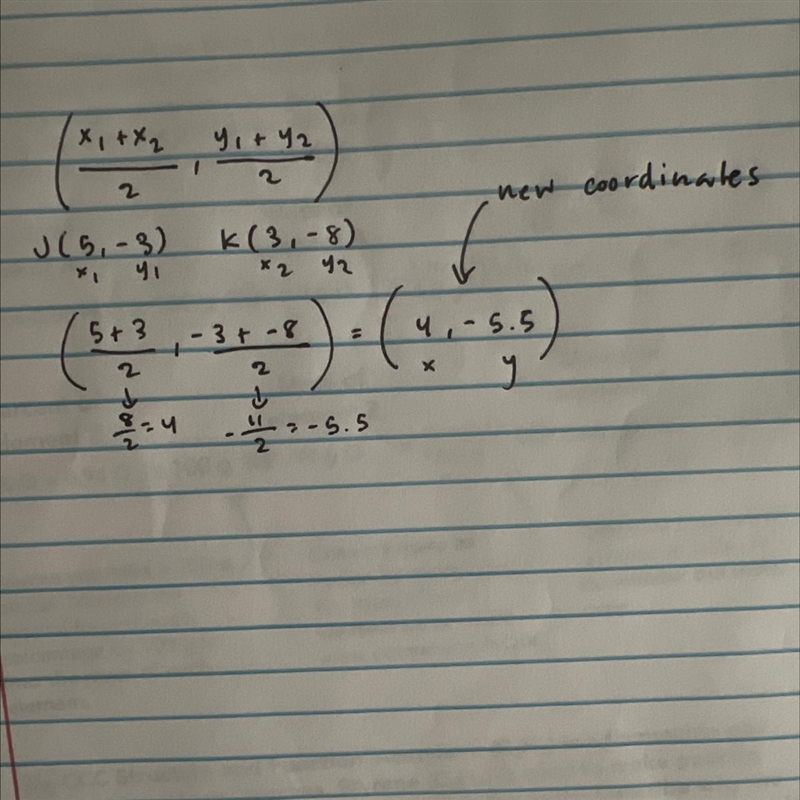 (x₁ + x₂ / 2 , y₁ + y₂ / 2)
new coordinates
J(5, -3) K(3, -8)
x₁ y₁ x₂ y₂
(5 + 3 / 2 , -3 + -8 / 2) = (4, -5.5)
x y
8/2 = 4 -11/2 = -5.5